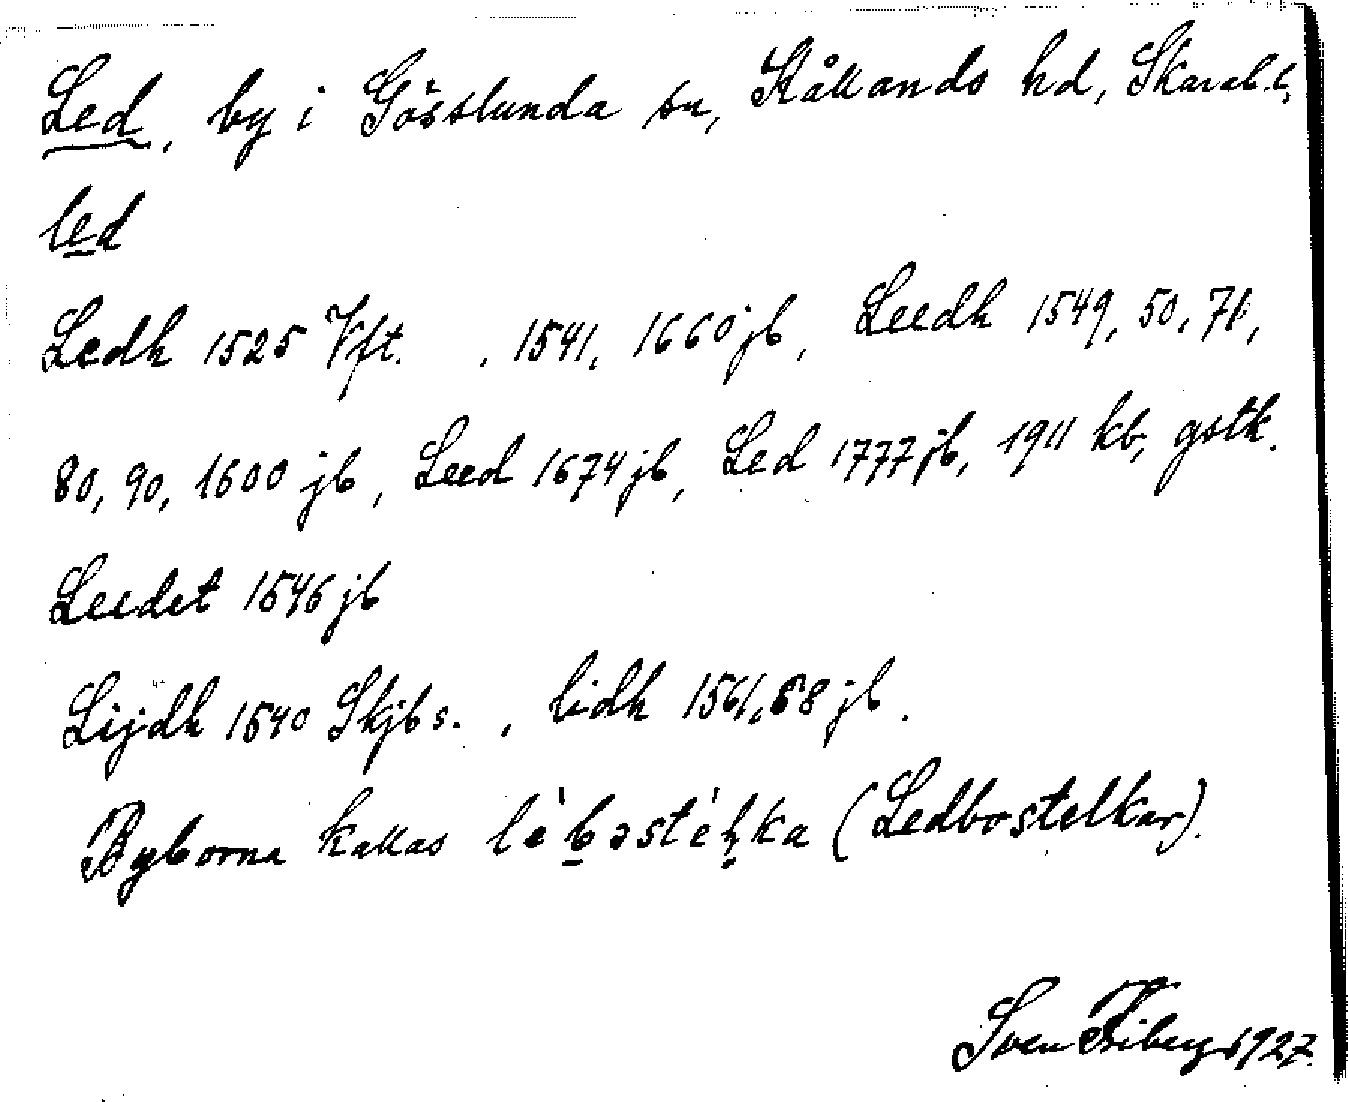 Led, by i Gösslunda sn, Kållands hd, Skarab.l,
led
Ledh 1525 Vft. , 1541, 1660 jb, Leedh 1549, 50, 71,
80, 90, 1600 jb, Leed 1674 jb, Led 1777 jb, 1911 kb, gstk.
Leedet 1546 jb
Lijdh 1540 Skjbs. , Lidh 1561, 68 jb.
Byborna kallas (Ledbostelkar).
Sven Friberg 1927.